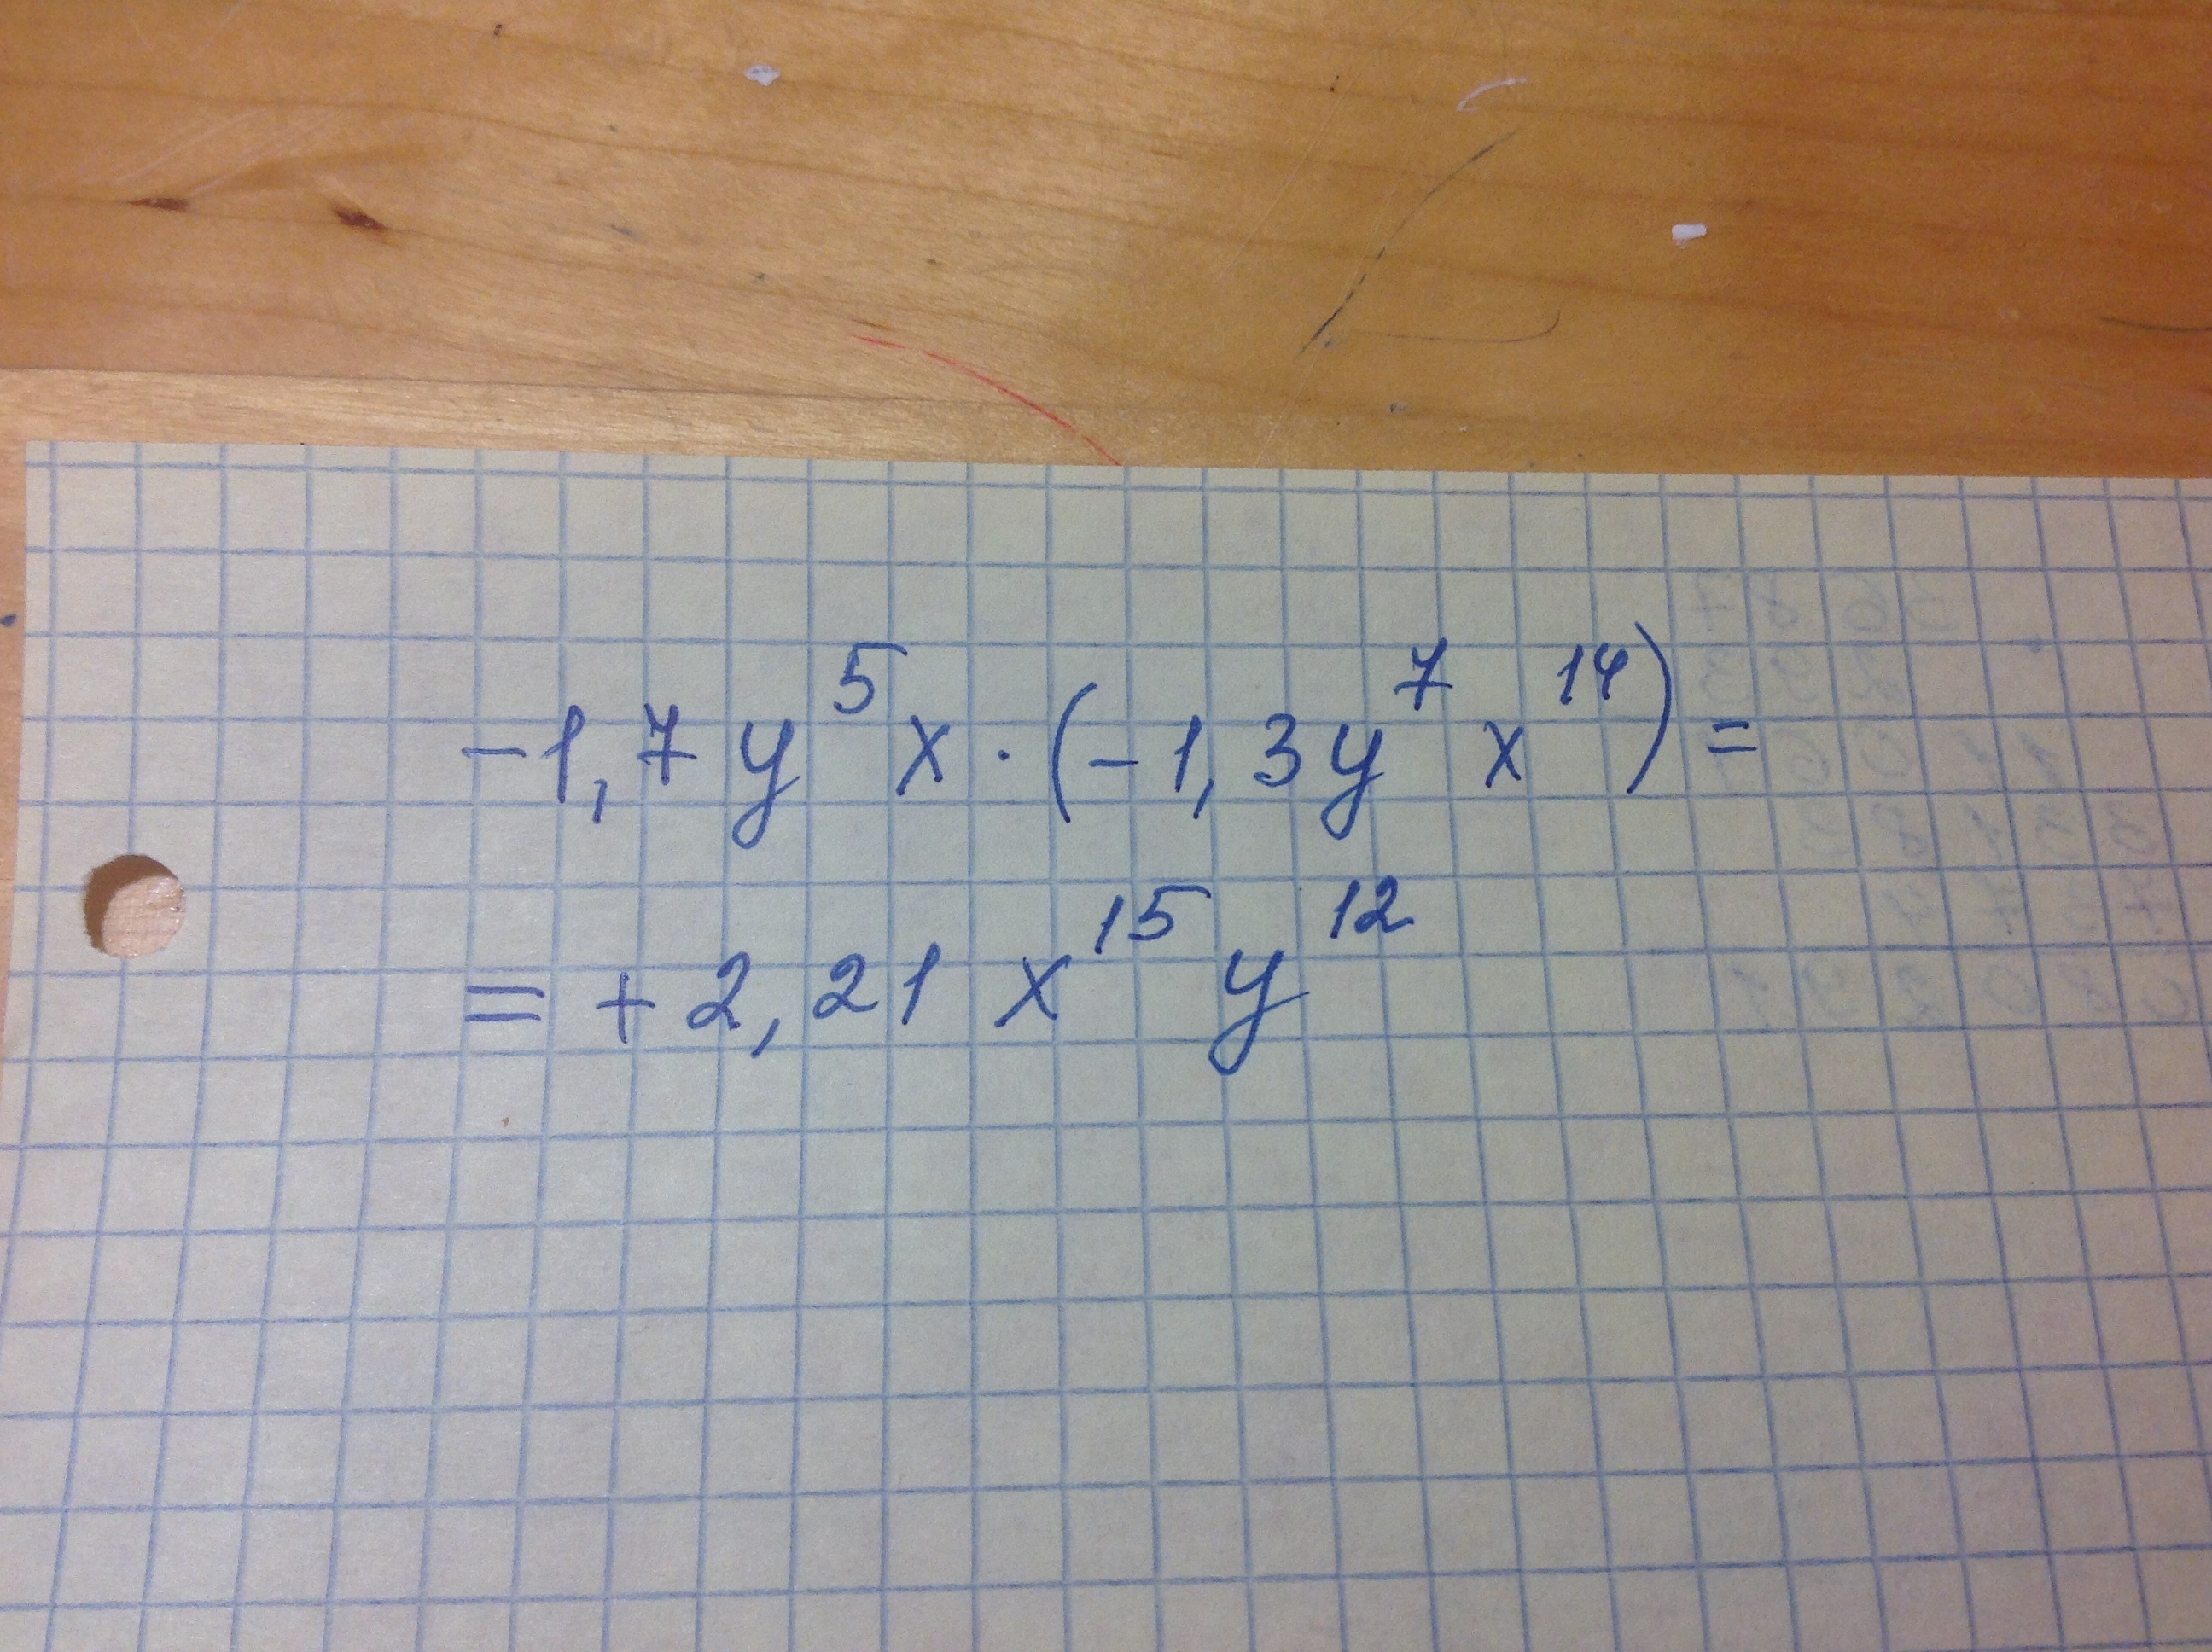 -1,7y⁵x·(-1,3y⁷x¹⁴)=
=+2,21x¹⁵y¹²